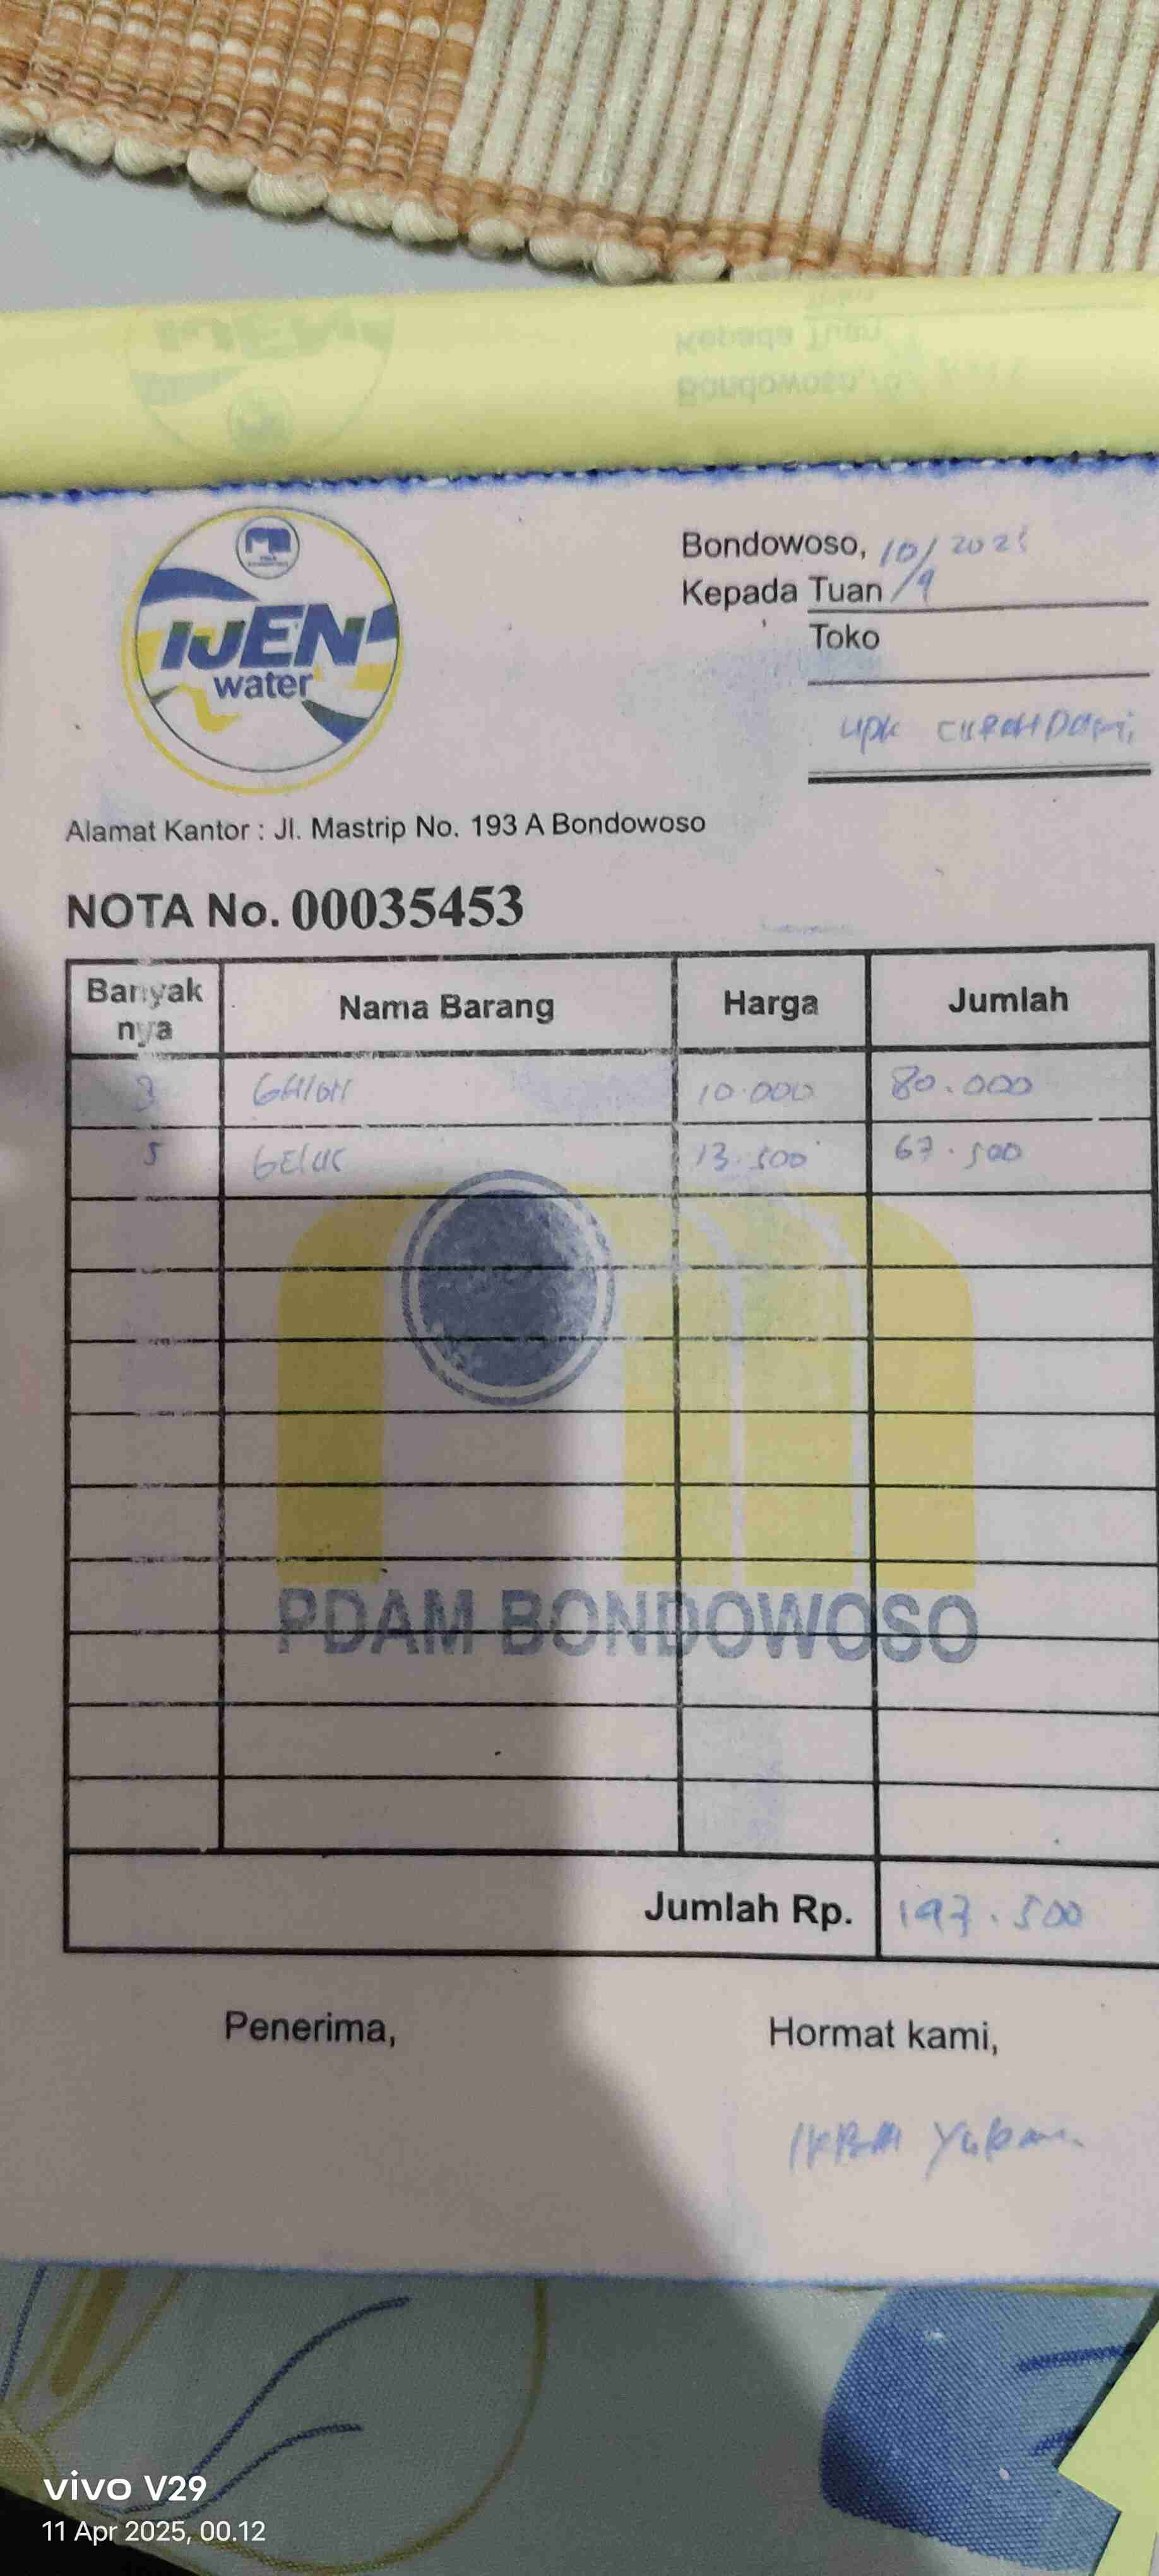 IJEN
water
Bondowoso, 10/
Kepada Tuan
Toko
upk CURAHDAMI
Alamat Kantor : Jl. Mastrip No. 193 A Bondowoso
NOTA No. 00035453
Banyak nya Nama Barang Harga Jumlah
GAlON 10.000 80.000
5 GElAS 13.500 67.500
PDAM BONDOWOSO
Jumlah Rp. 147.500
Penerima, Hormat kami,
vivo V29
11 Apr 2025, 00.12